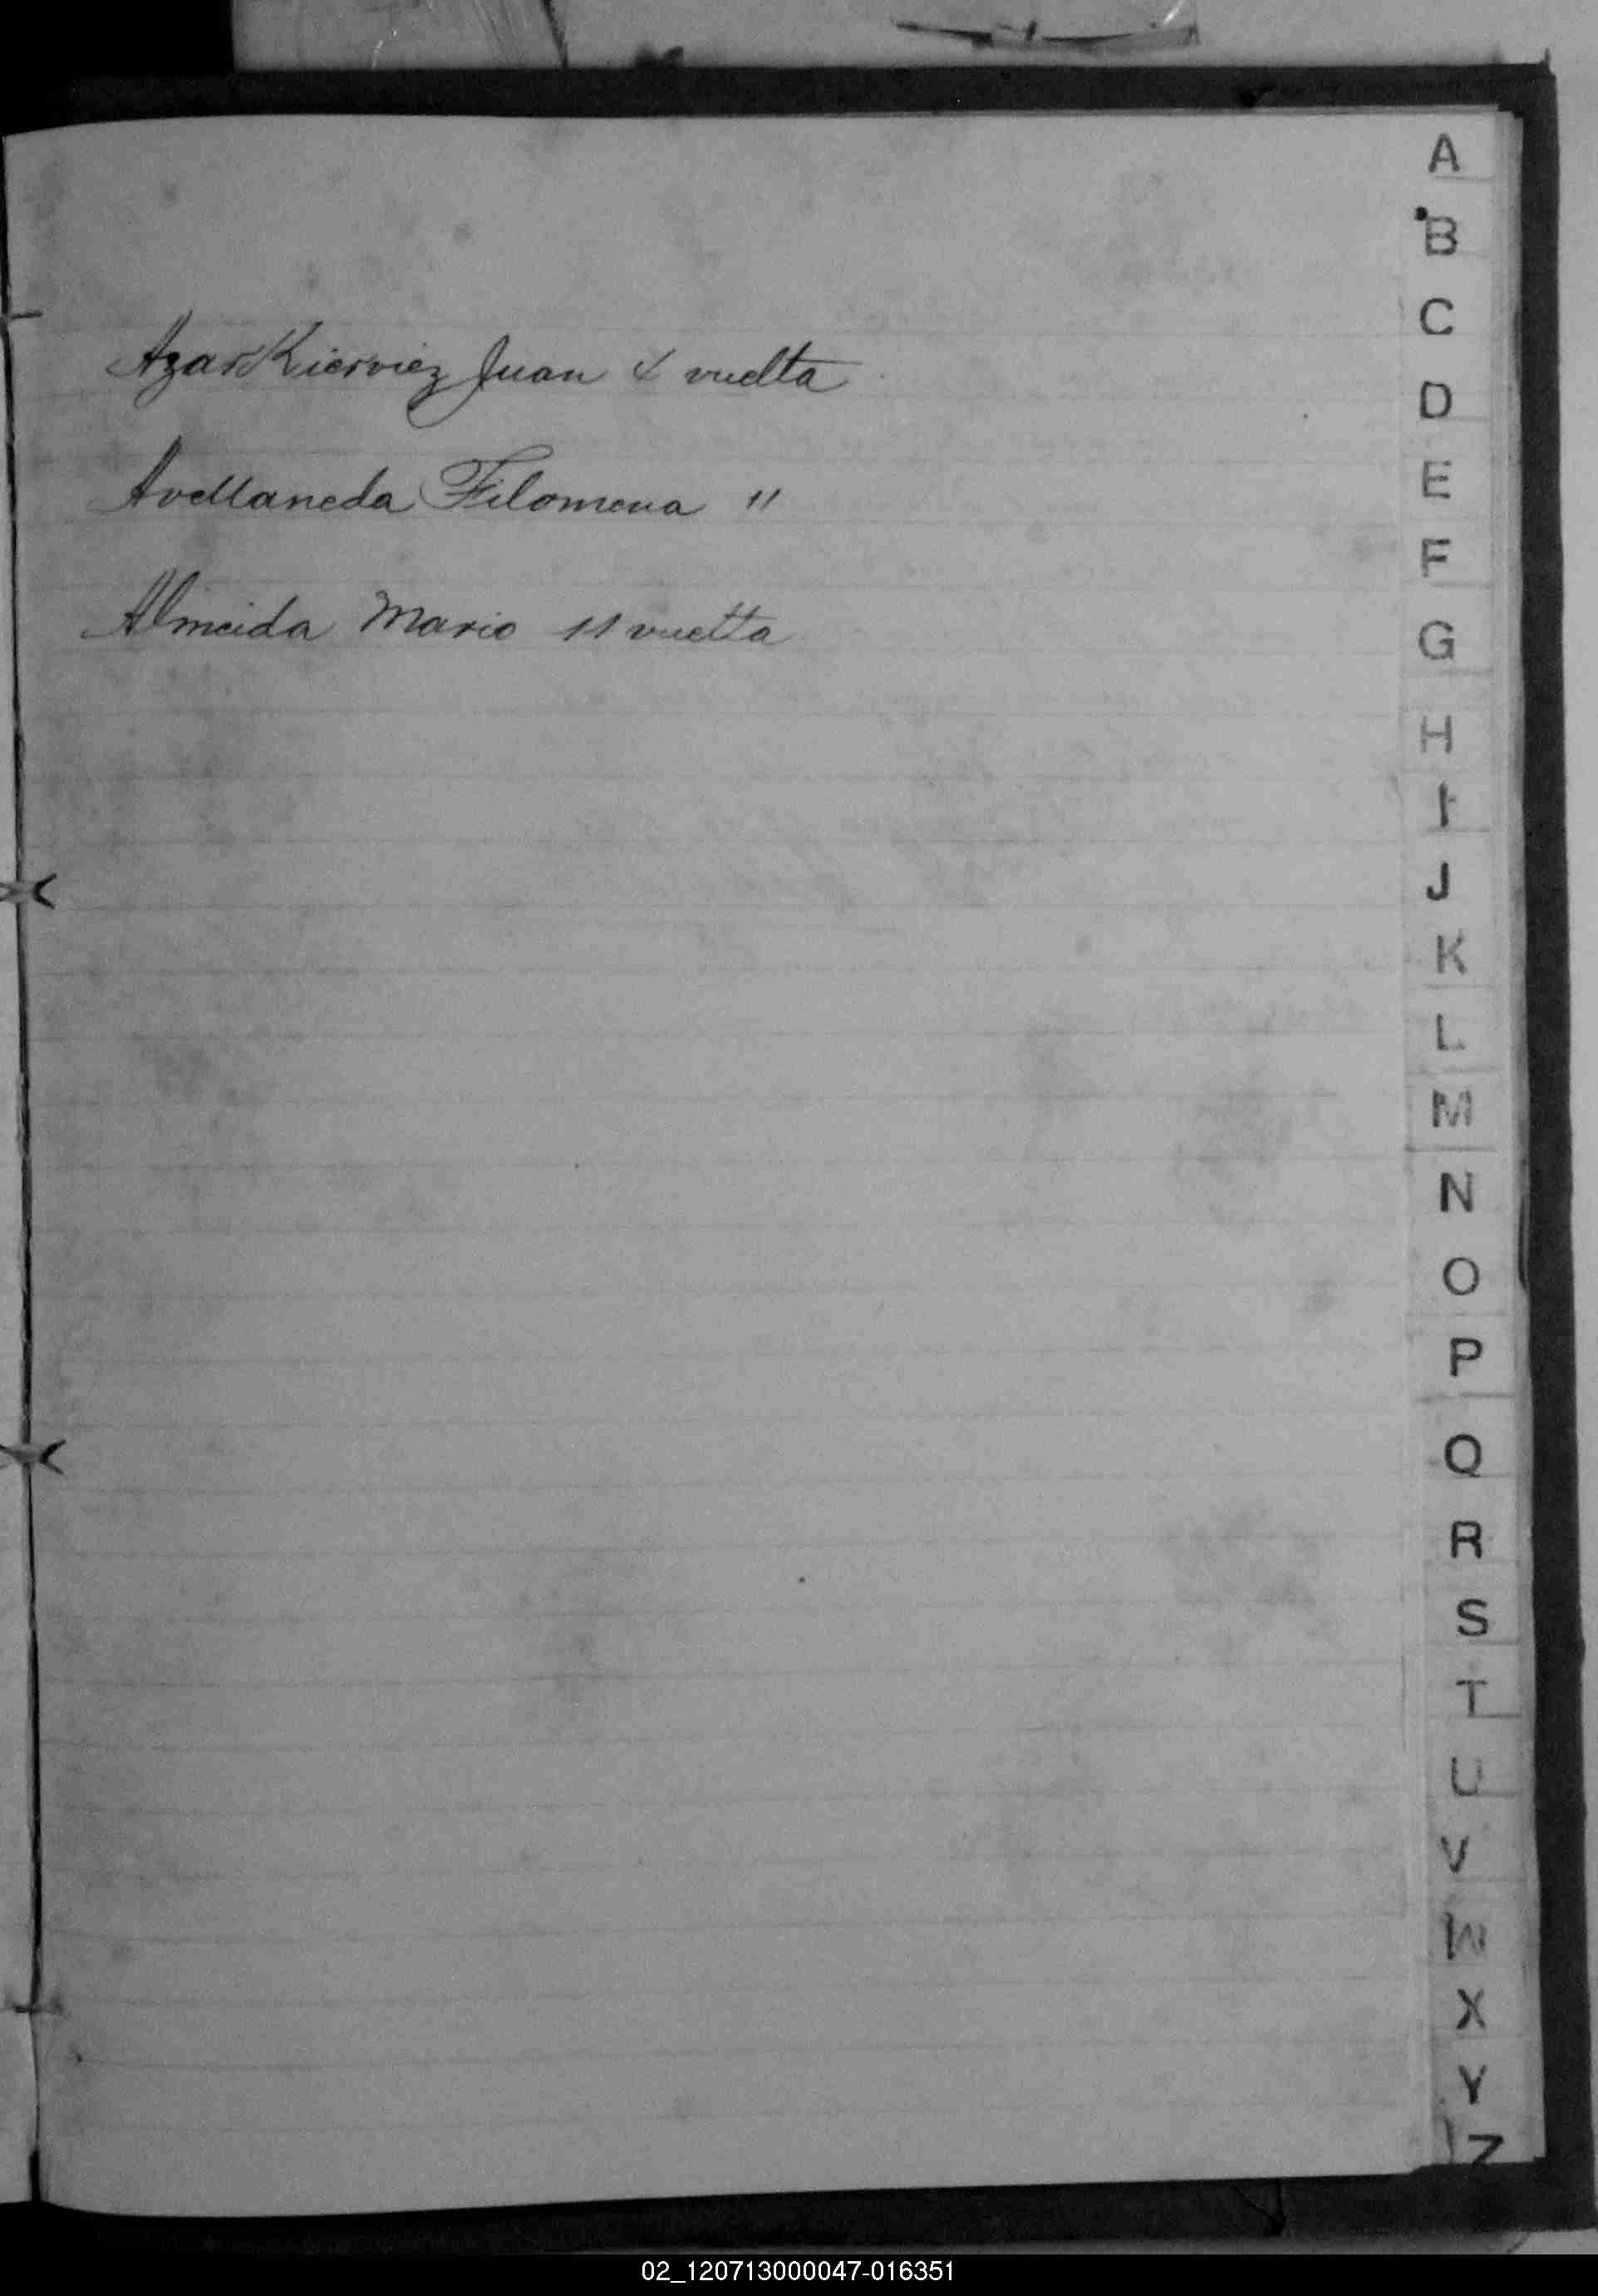 AzarKierviez Juan 4 vuelta
Avellaneda Filomena 11
Almeida Mario 11 vuelta
A
B
C
D
E
F
G
H
I
J
K
L
M
N
O
P
Q
R
S
T
U
V
W
X
Y
Z
02_120713000047-016351